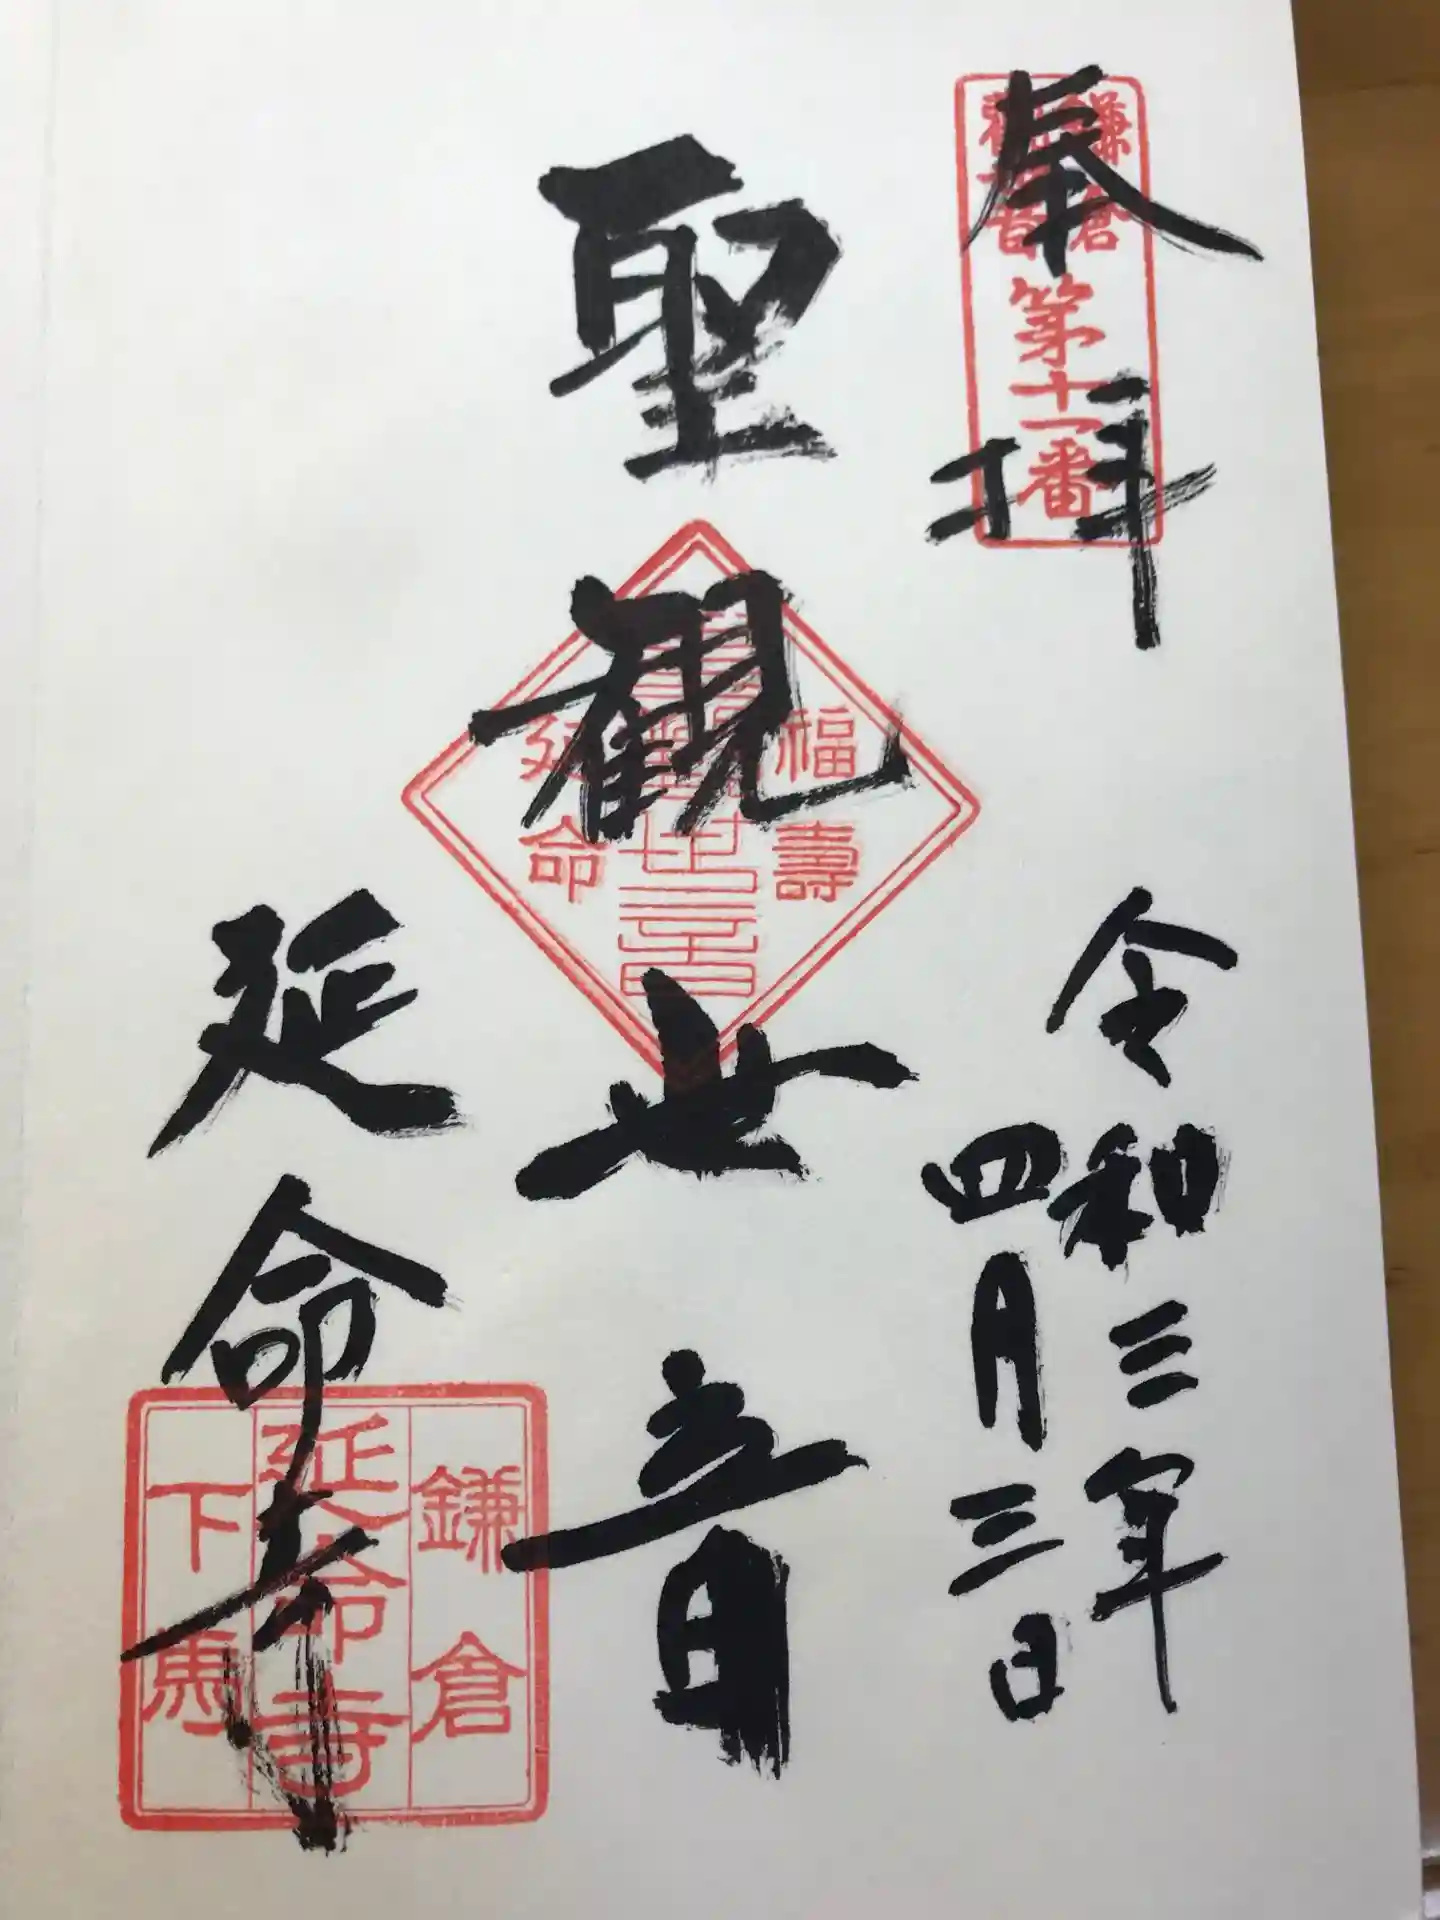 奉拝
鎌倉
観音
第十一番
令和三年
四月三日
聖観世音
福壽
聖観世音
延命
延命寺
鎌倉
延命寺
下馬